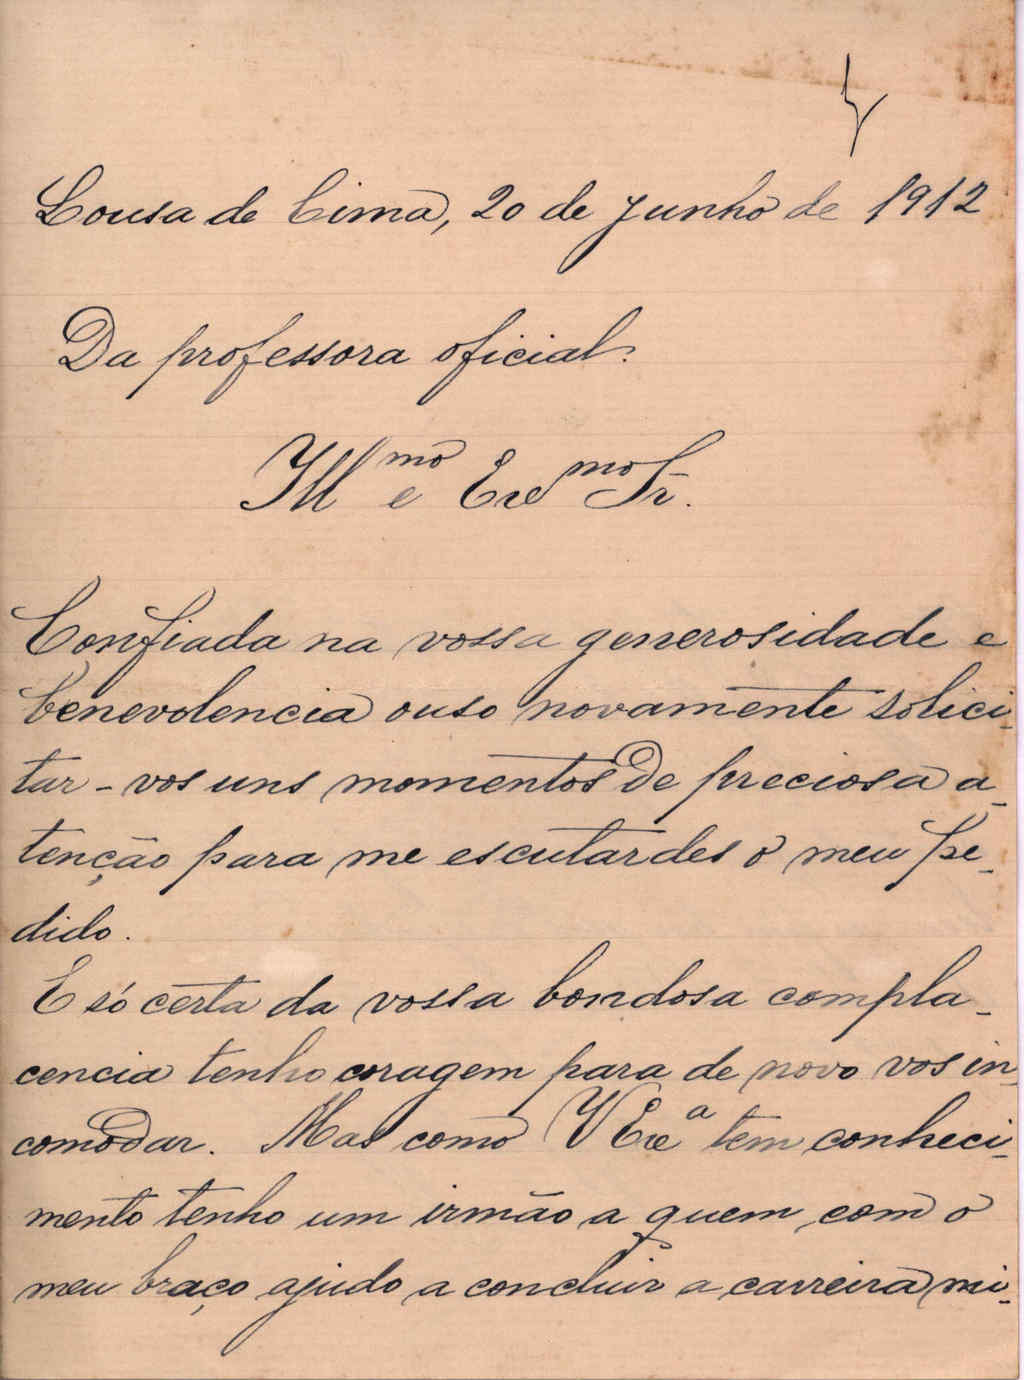 Lousa de Cima, 20 de Junho de 1912
Da professora oficial.
Illmo e Exemo Sr.
Confiada na vossa generosidade e
benevolencia ouso novamente solici-
tar-vos uns momentos de preciosa a-
tenção para me escutardes o meu pe-
dido.
E só certa da vossa bondosa compla-
cencia tenho coragem para de novo vos in-
comodar. Mas como V Exea tem conheci-
mento tenho um irmão a quem com o
meu braço ajudo a concluir a carreira mi-